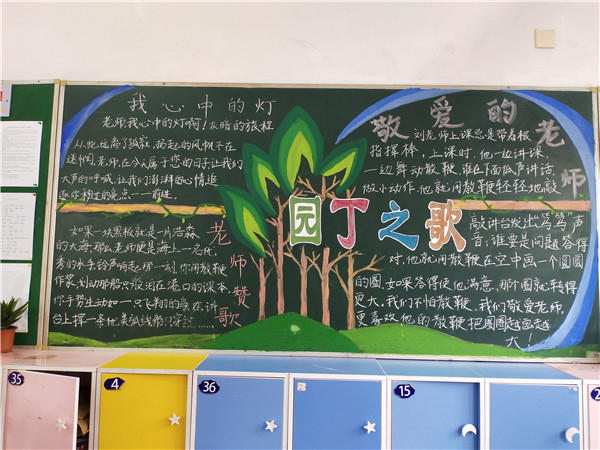 我心中的灯
老师我心中的灯啊!灰暗的旅程
从此远离了孤寂,扬起的风帆不在
迷惘,老师,在今天属于您的日子让我们
大声的呼喊,让我们澎湃的心情追
逐你移过的亮点一一前进
如果一块黑板就是一片浩淼
的大海,那么老师便是海上一名优
秀的水手,铃声响起那一刻,你用教鞭
作桨,划动那船只般泊在港口的课本
你手势生动如一只飞翔的鸟,在讲
台上挥一条优美弧线
老师赞歌
园丁之歌
敬爱的老师
刘老师上课总是带着板
指挥棒,上课时,他一边讲课,
一边舞动教鞭,谁在下面低声讲话,
做小动作,他就用教鞭轻轻地敲
敲讲台发出"笃笃"声
音;谁要是问题答得
对,他就用教鞭在空中画一个圆圆
的圆,如果答得使他满意,那个圈就转得
更大,我们不怕教鞭,我们敬爱老师,
更喜欢他的教鞭把圆圈越画越
大!
35
4
36
15
2